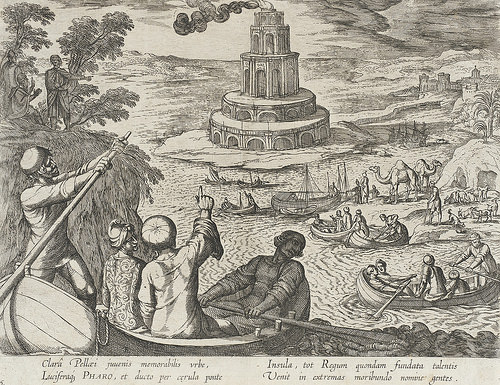 Clarâ Pellæi juvenis memorabilis vrbe,
Luciferaq; PHARO, et ducto per cęrula ponte
Insula, tot Regum quondam fundata talentis
Venit in extremas moribundo nomine gentes